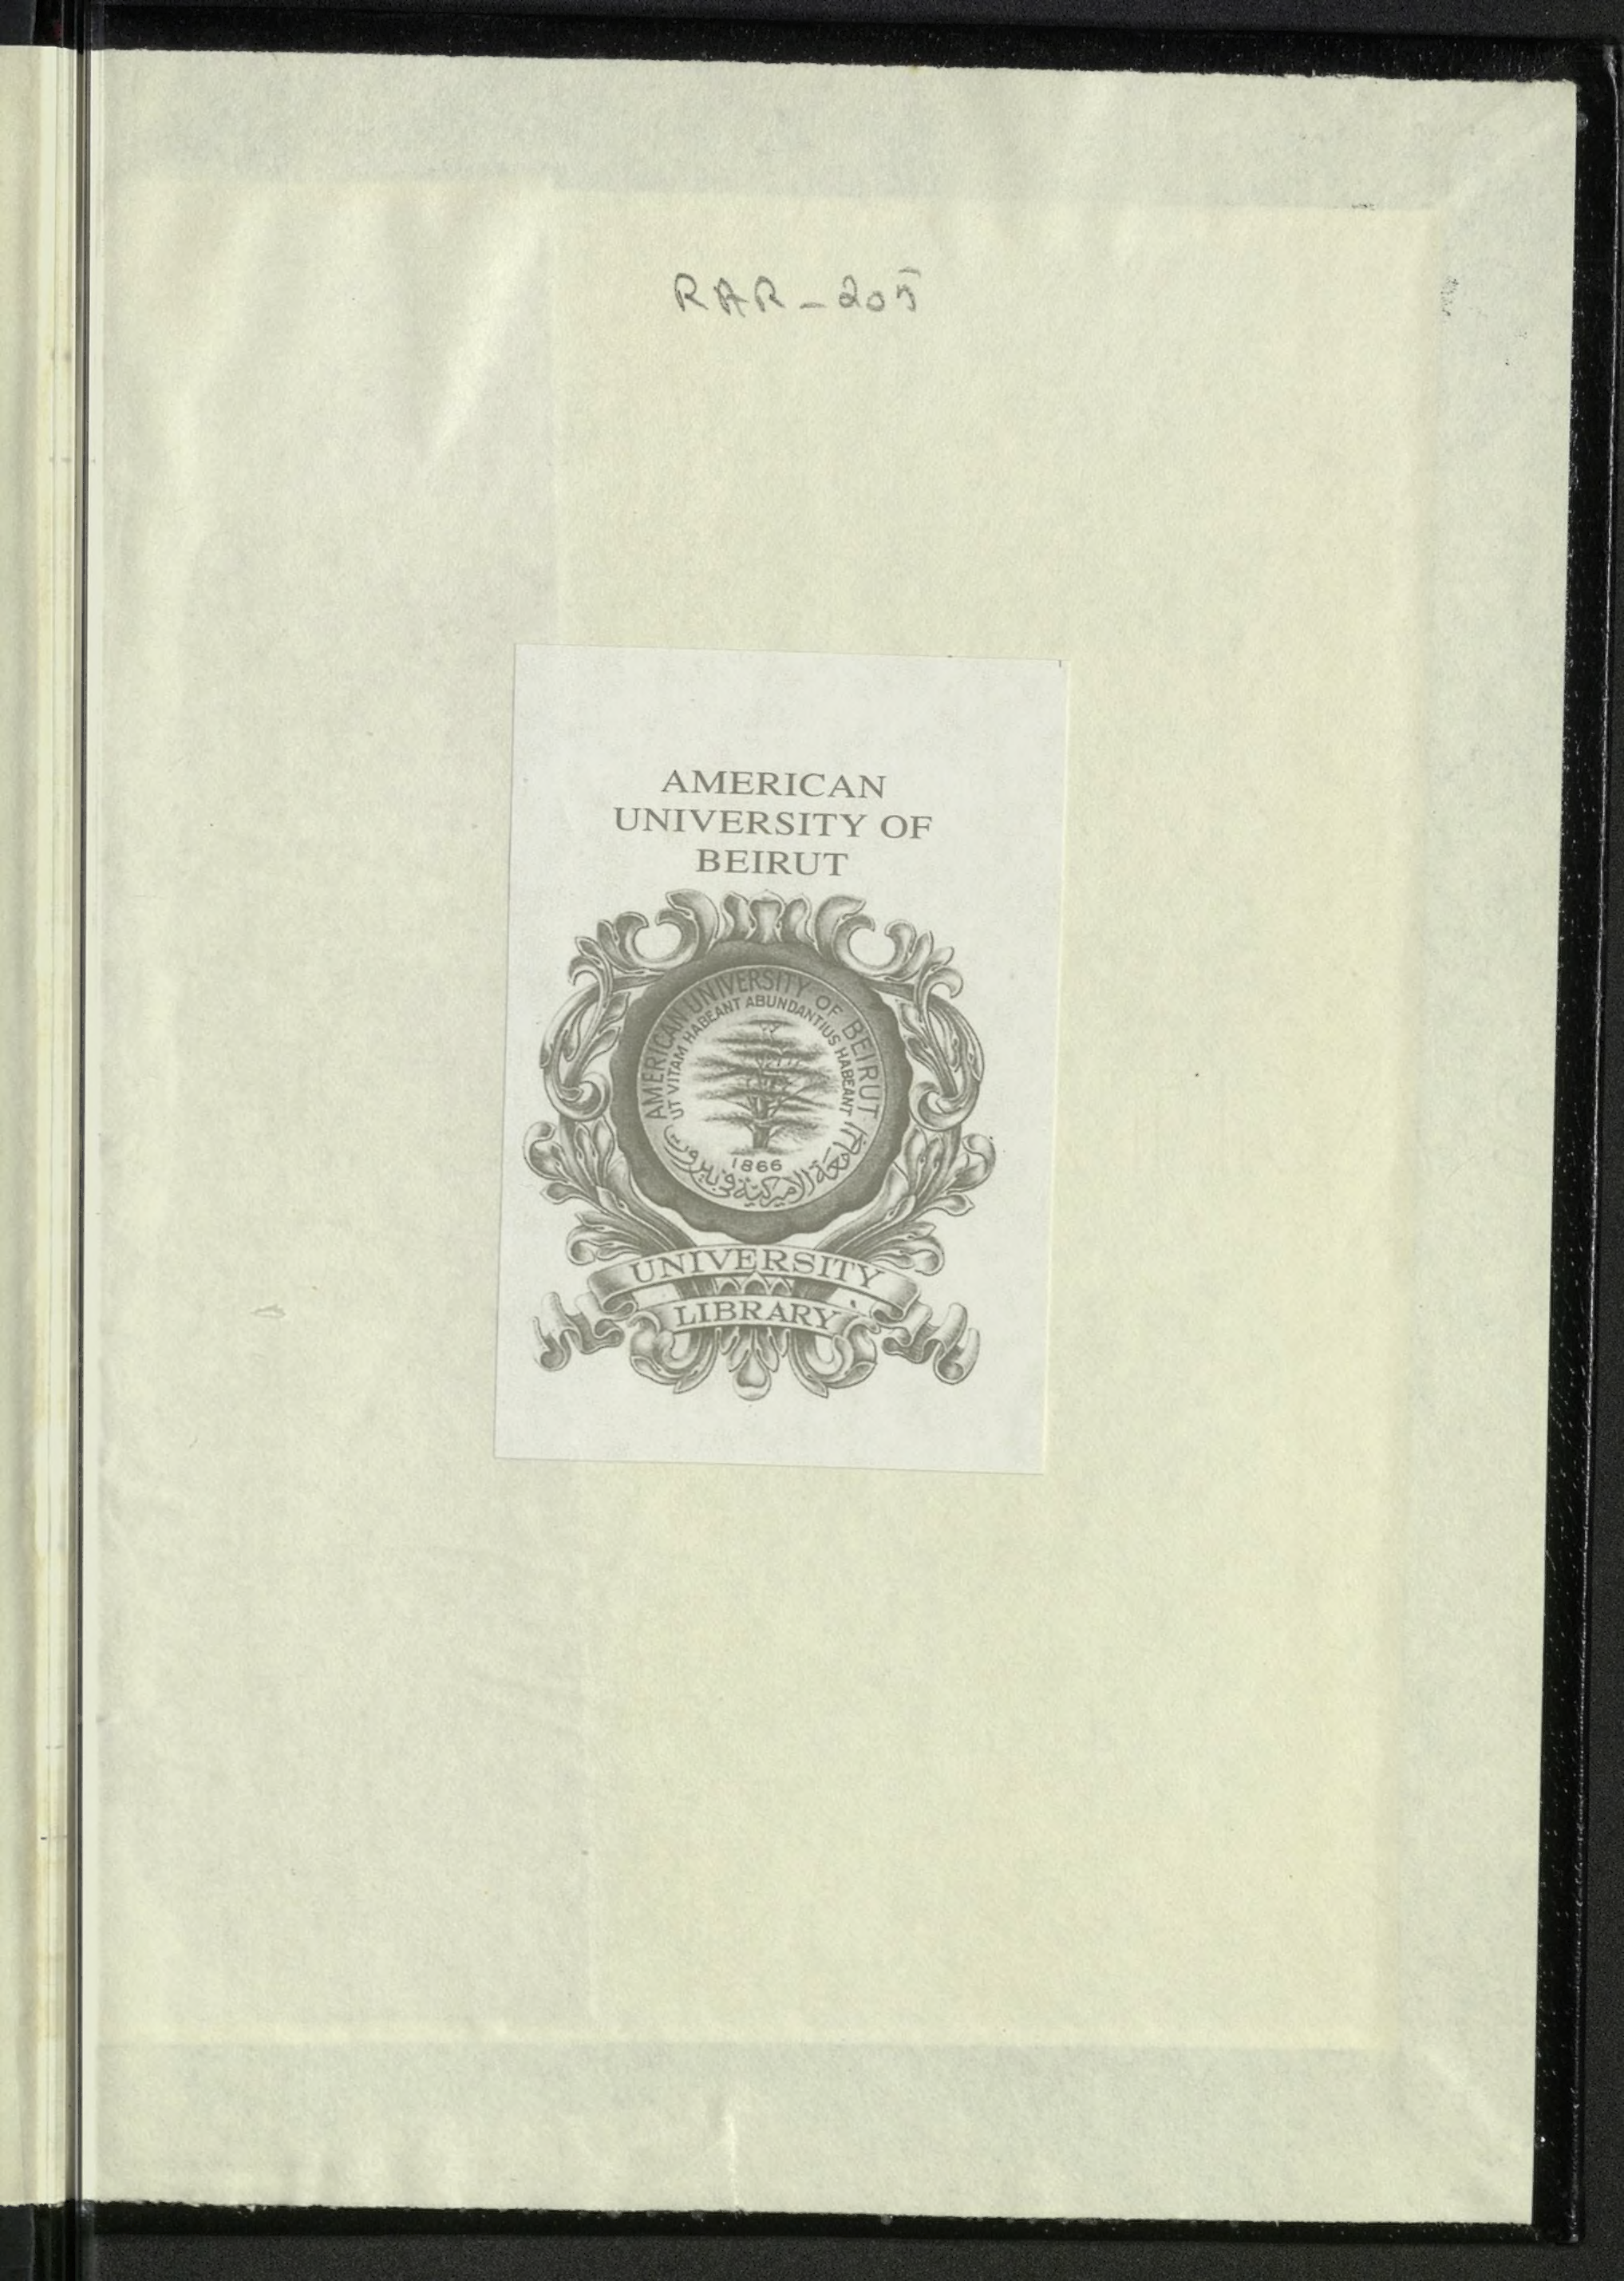 RAR-205
AMERICAN
UNIVERSITY OF
BEIRUT
AMERICAN UNIVERSITY OF BEIRUT
UT VITAM HABEANT ABUNDANTIUS HABEANT
1866
الجامعة الاميركية في بيروت
UNIVERSITY
LIBRARY